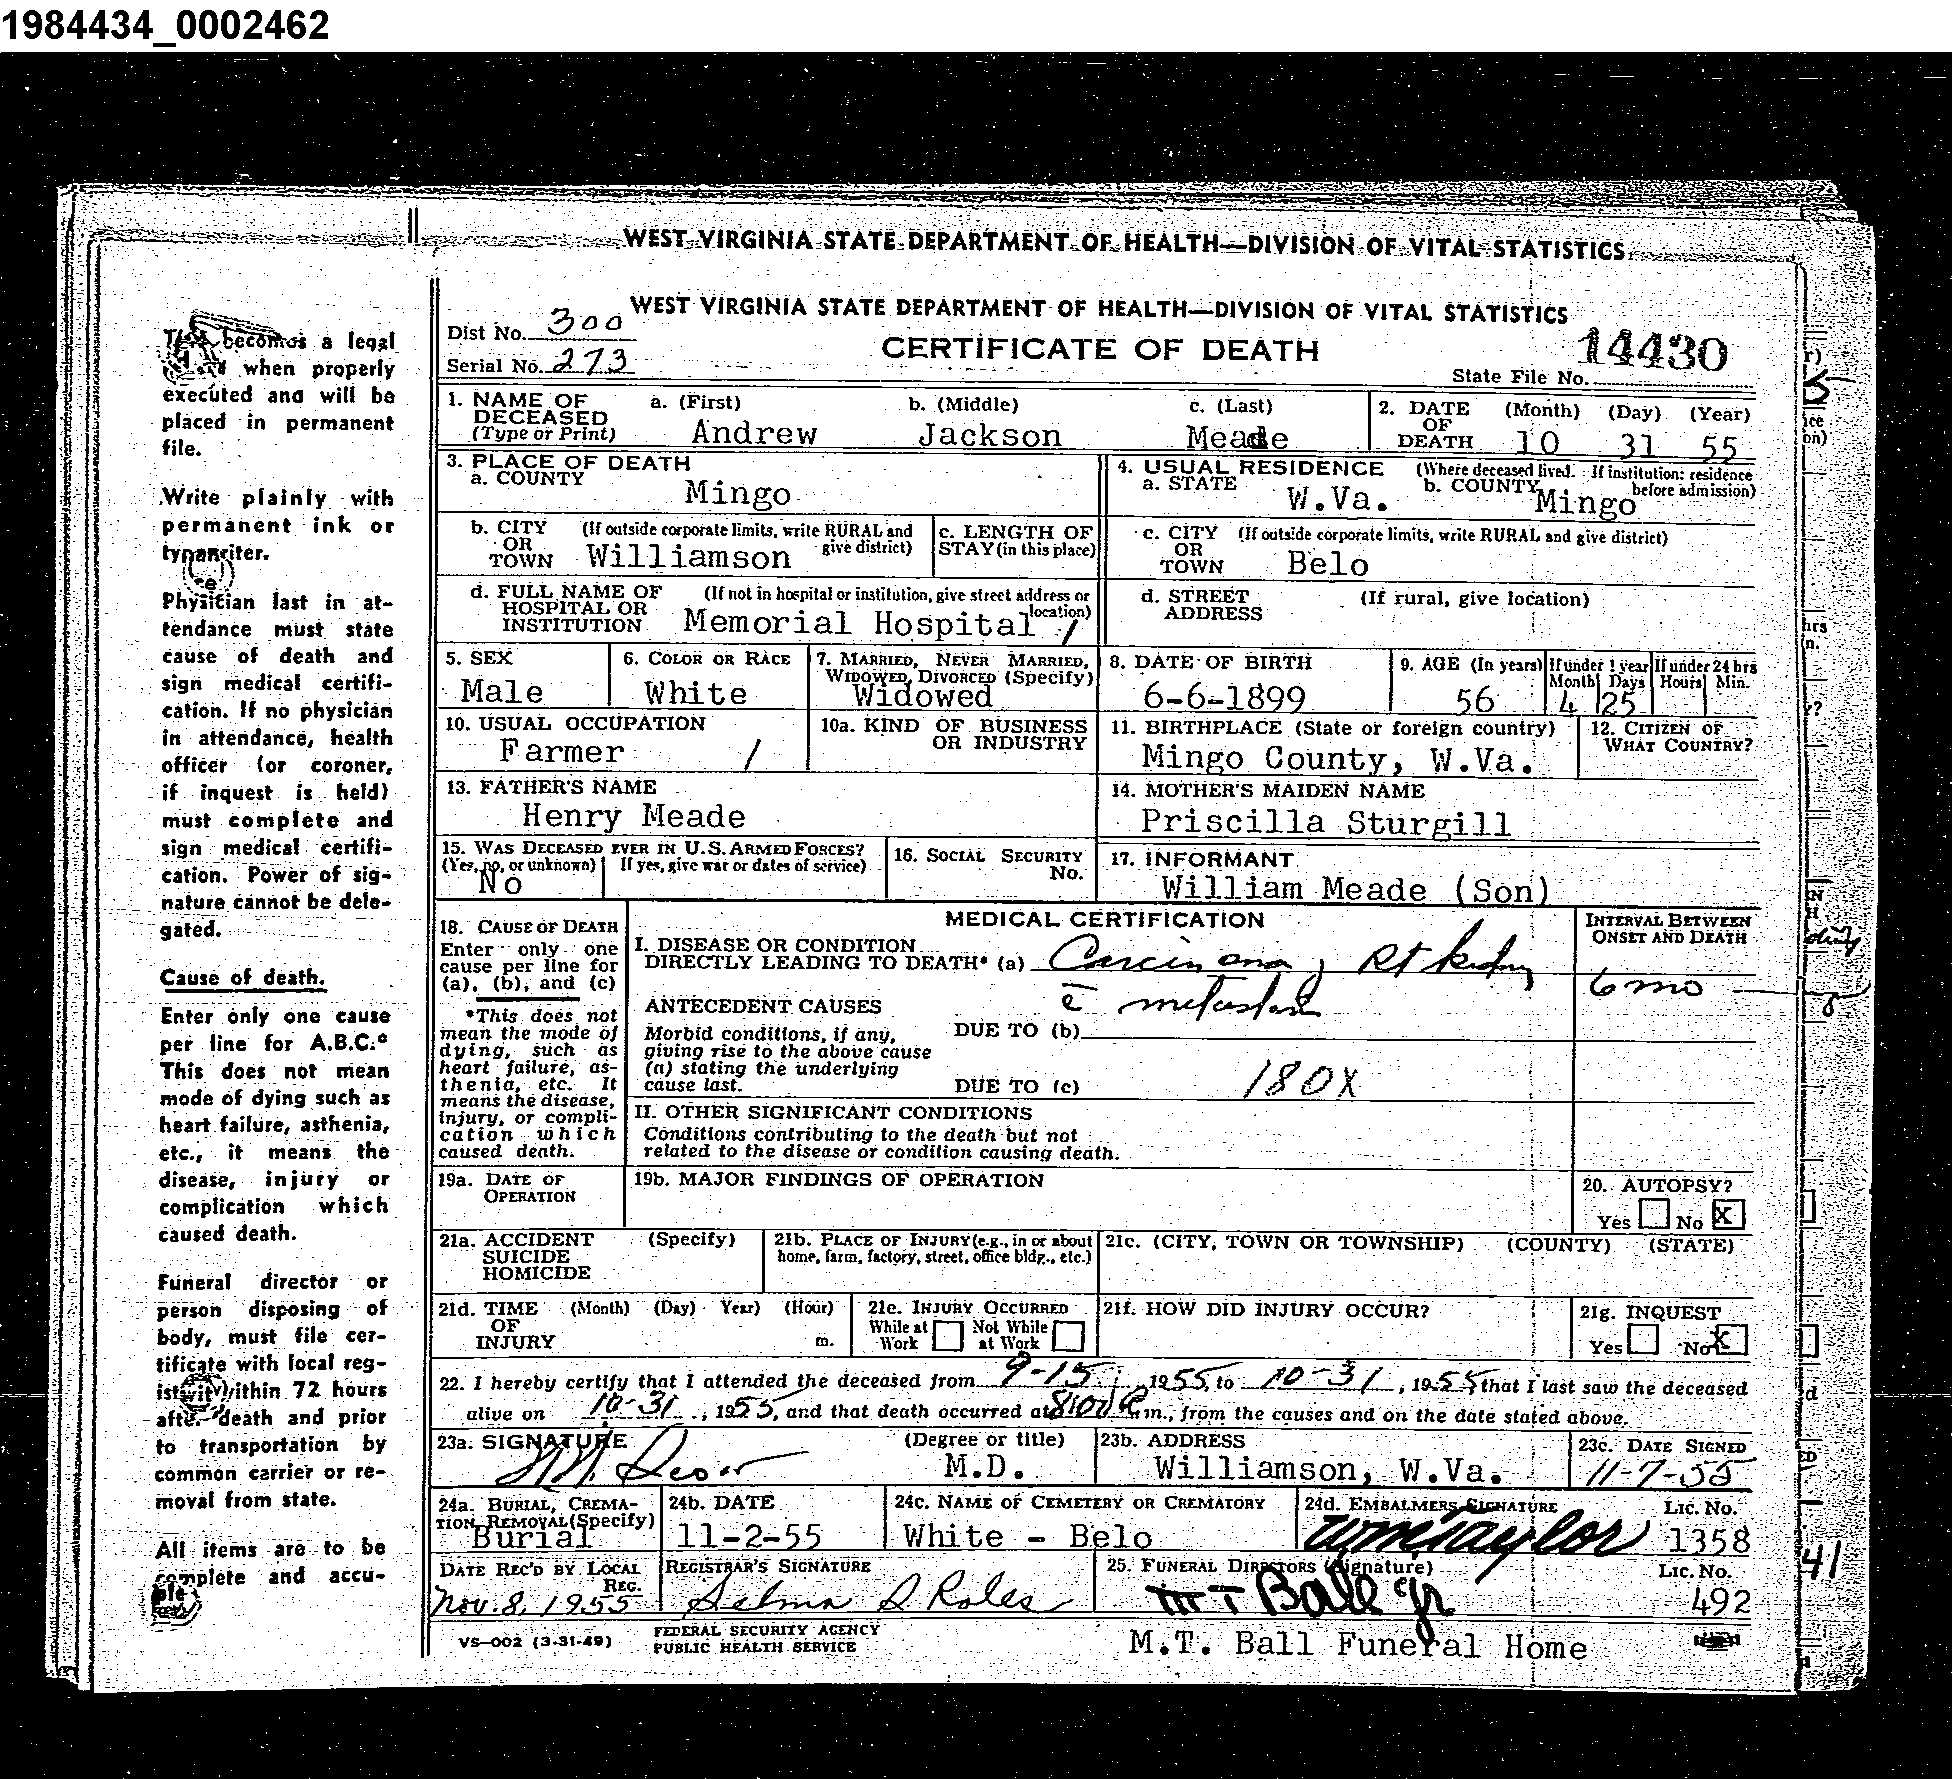 1984434_0002462
WEST VIRGINIA STATE DEPARTMENT OF HEALTH—DIVISION OF VITAL STATISTICS
becomes a legal
when properly
executed and will be
placed in permanent
file.
Write plainly with
permanent ink or
typewriter.
Physician last in at-
tendance must state
cause of death and
sign medical certifi-
cation. If no physician
in attendance, health
officer (or coroner,
if inquest is held)
must complete and
sign medical certifi-
cation. Power of sig-
nature cannot be dele-
gated.
Cause of death.
Enter only one cause
per line for A.B.C.*
This does not mean
mode of dying such as
heart failure, asthenia,
etc., it means the
disease, injury or
complication which
caused death.
Funeral director or
person disposing of
body, must file cer-
tificate with local reg-
within 72 hours
after death and prior
to transportation by
common carrier or re-
moval from state.
All items are to be
complete and accu-
WEST VIRGINIA STATE DEPARTMENT OF HEALTH—DIVISION OF VITAL STATISTICS
Dist No. 300
Serial No. 273
CERTIFICATE OF DEATH
14430
State File No.
1. NAME OF DECEASED (Type or Print) a. (First) Andrew b. (Middle) Jackson c. (Last) Meade
2. DATE OF DEATH (Month) 10 (Day) 31 (Year) 55
3. PLACE OF DEATH
a. COUNTY Mingo
4. USUAL RESIDENCE (Where deceased lived. If institution: residence before admission)
a. STATE W.Va. b. COUNTY Mingo
b. CITY OR TOWN (If outside corporate limits, write RURAL and give district) Williamson
c. LENGTH OF STAY (in this place)
c. CITY OR TOWN (If outside corporate limits, write RURAL and give district) Belo
d. FULL NAME OF HOSPITAL OR INSTITUTION (If not in hospital or institution, give street address or location) Memorial Hospital /
d. STREET ADDRESS (If rural, give location)
5. SEX Male
6. COLOR OR RACE White
7. MARRIED, NEVER MARRIED, WIDOWED, DIVORCED (Specify) Widowed
8. DATE OF BIRTH 6-6-1899
9. AGE (In years) 56 If under 1 year Month 4 Days 25 If under 24 hrs Hours Min.
10. USUAL OCCUPATION Farmer /
10a. KIND OF BUSINESS OR INDUSTRY
11. BIRTHPLACE (State or foreign country) Mingo County, W.Va.
12. CITIZEN OF WHAT COUNTRY?
13. FATHER'S NAME Henry Meade
14. MOTHER'S MAIDEN NAME Priscilla Sturgill
15. WAS DECEASED EVER IN U.S. ARMED FORCES? (Yes, no, or unknown) No If yes, give war or dates of service)
16. SOCIAL SECURITY No.
17. INFORMANT William Meade (Son)
18. CAUSE OF DEATH
Enter only one
cause per line for
(a), (b), and (c)
*This does not
mean the mode of
dying, such as
heart failure, as-
thenia, etc. It
means the disease,
injury, or compli-
cation which
caused death.
MEDICAL CERTIFICATION
INTERVAL BETWEEN ONSET AND DEATH
I. DISEASE OR CONDITION
DIRECTLY LEADING TO DEATH* (a) Carcinoma, Rt kidney
6 mo
ANTECEDENT CAUSES c̄ metastasis
Morbid conditions, if any, DUE TO (b)
giving rise to the above cause
(a) stating the underlying
cause last. DUE TO (c) 180X
II. OTHER SIGNIFICANT CONDITIONS
Conditions contributing to the death but not
related to the disease or condition causing death.
19a. DATE OF OPERATION
19b. MAJOR FINDINGS OF OPERATION
20. AUTOPSY?
Yes No X
21a. ACCIDENT SUICIDE HOMICIDE (Specify)
21b. PLACE OF INJURY (e.g., in or about home, farm, factory, street, office bldg., etc.)
21c. (CITY, TOWN OR TOWNSHIP) (COUNTY) (STATE)
21d. TIME OF INJURY (Month) (Day) Year) (Hour) m.
21e. INJURY OCCURRED While at Work Not While at Work
21f. HOW DID INJURY OCCUR?
21g. INQUEST
Yes No X
22. I hereby certify that I attended the deceased from 9-15, 1955, to 10-31, 1955, that I last saw the deceased
alive on 10-31, 1955, and that death occurred at 8:00 P m., from the causes and on the date stated above.
23a. SIGNATURE (Degree or title) M.D.
23b. ADDRESS Williamson, W.Va.
23c. DATE SIGNED 11-7-55
24a. BURIAL, CREMATION, REMOVAL (Specify) Burial
24b. DATE 11-2-55
24c. NAME OF CEMETERY OR CREMATORY White - Belo
24d. EMBALMERS SIGNATURE Wm Taylor Lic. No. 1358
DATE REC'D BY LOCAL REG. Nov. 8, 1955
REGISTRAR'S SIGNATURE Selma S Roles
25. FUNERAL DIRECTORS (Signature) M T Ball Jr Lic. No. 492
VS-002 (3-31-49)
FEDERAL SECURITY AGENCY
PUBLIC HEALTH SERVICE
M.T. Ball Funeral Home
41